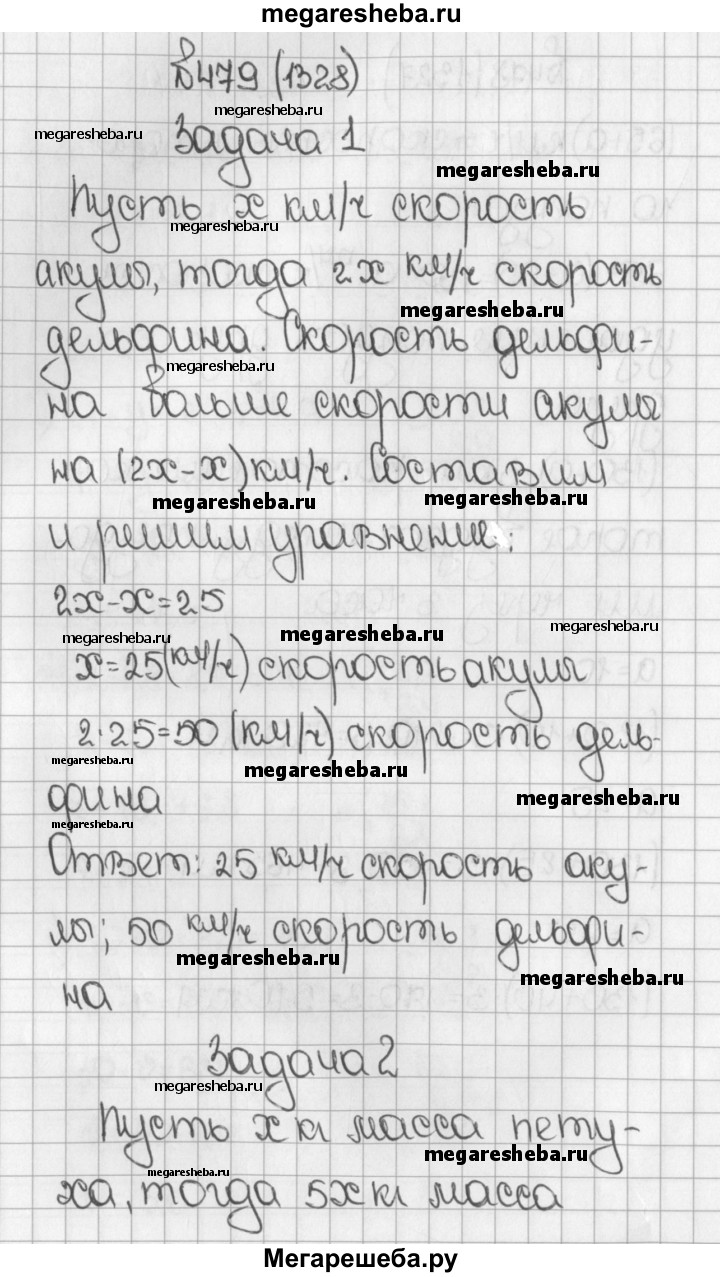 megaresheba.ru
№479 (1328)
megaresheba.ru
megaresheba.ru
Задача 1
megaresheba.ru
Пусть x км/ч скорость
megaresheba.ru
акулы, тогда 2x км/ч скорость
megaresheba.ru
дельфина. Скорость дельфи-
megaresheba.ru
на больше скорости акулы
на (2x-x) км/ч. Составим
megaresheba.ru
megaresheba.ru
и решим уравнение:
2x-x=25
megaresheba.ru
megaresheba.ru
megaresheba.ru
x=25(км/ч) скорость акулы
2·25=50 (км/ч) скорость дель-
megaresheba.ru
megaresheba.ru
фина
megaresheba.ru
megaresheba.ru
Ответ: 25 км/ч скорость аку-
лы; 50 км/ч скорость дельфи-
megaresheba.ru
megaresheba.ru
на
Задача 2
megaresheba.ru
Пусть x кг масса пету-
megaresheba.ru
megaresheba.ru
ха, тогда 5x кг масса
Мегарешеба.ру